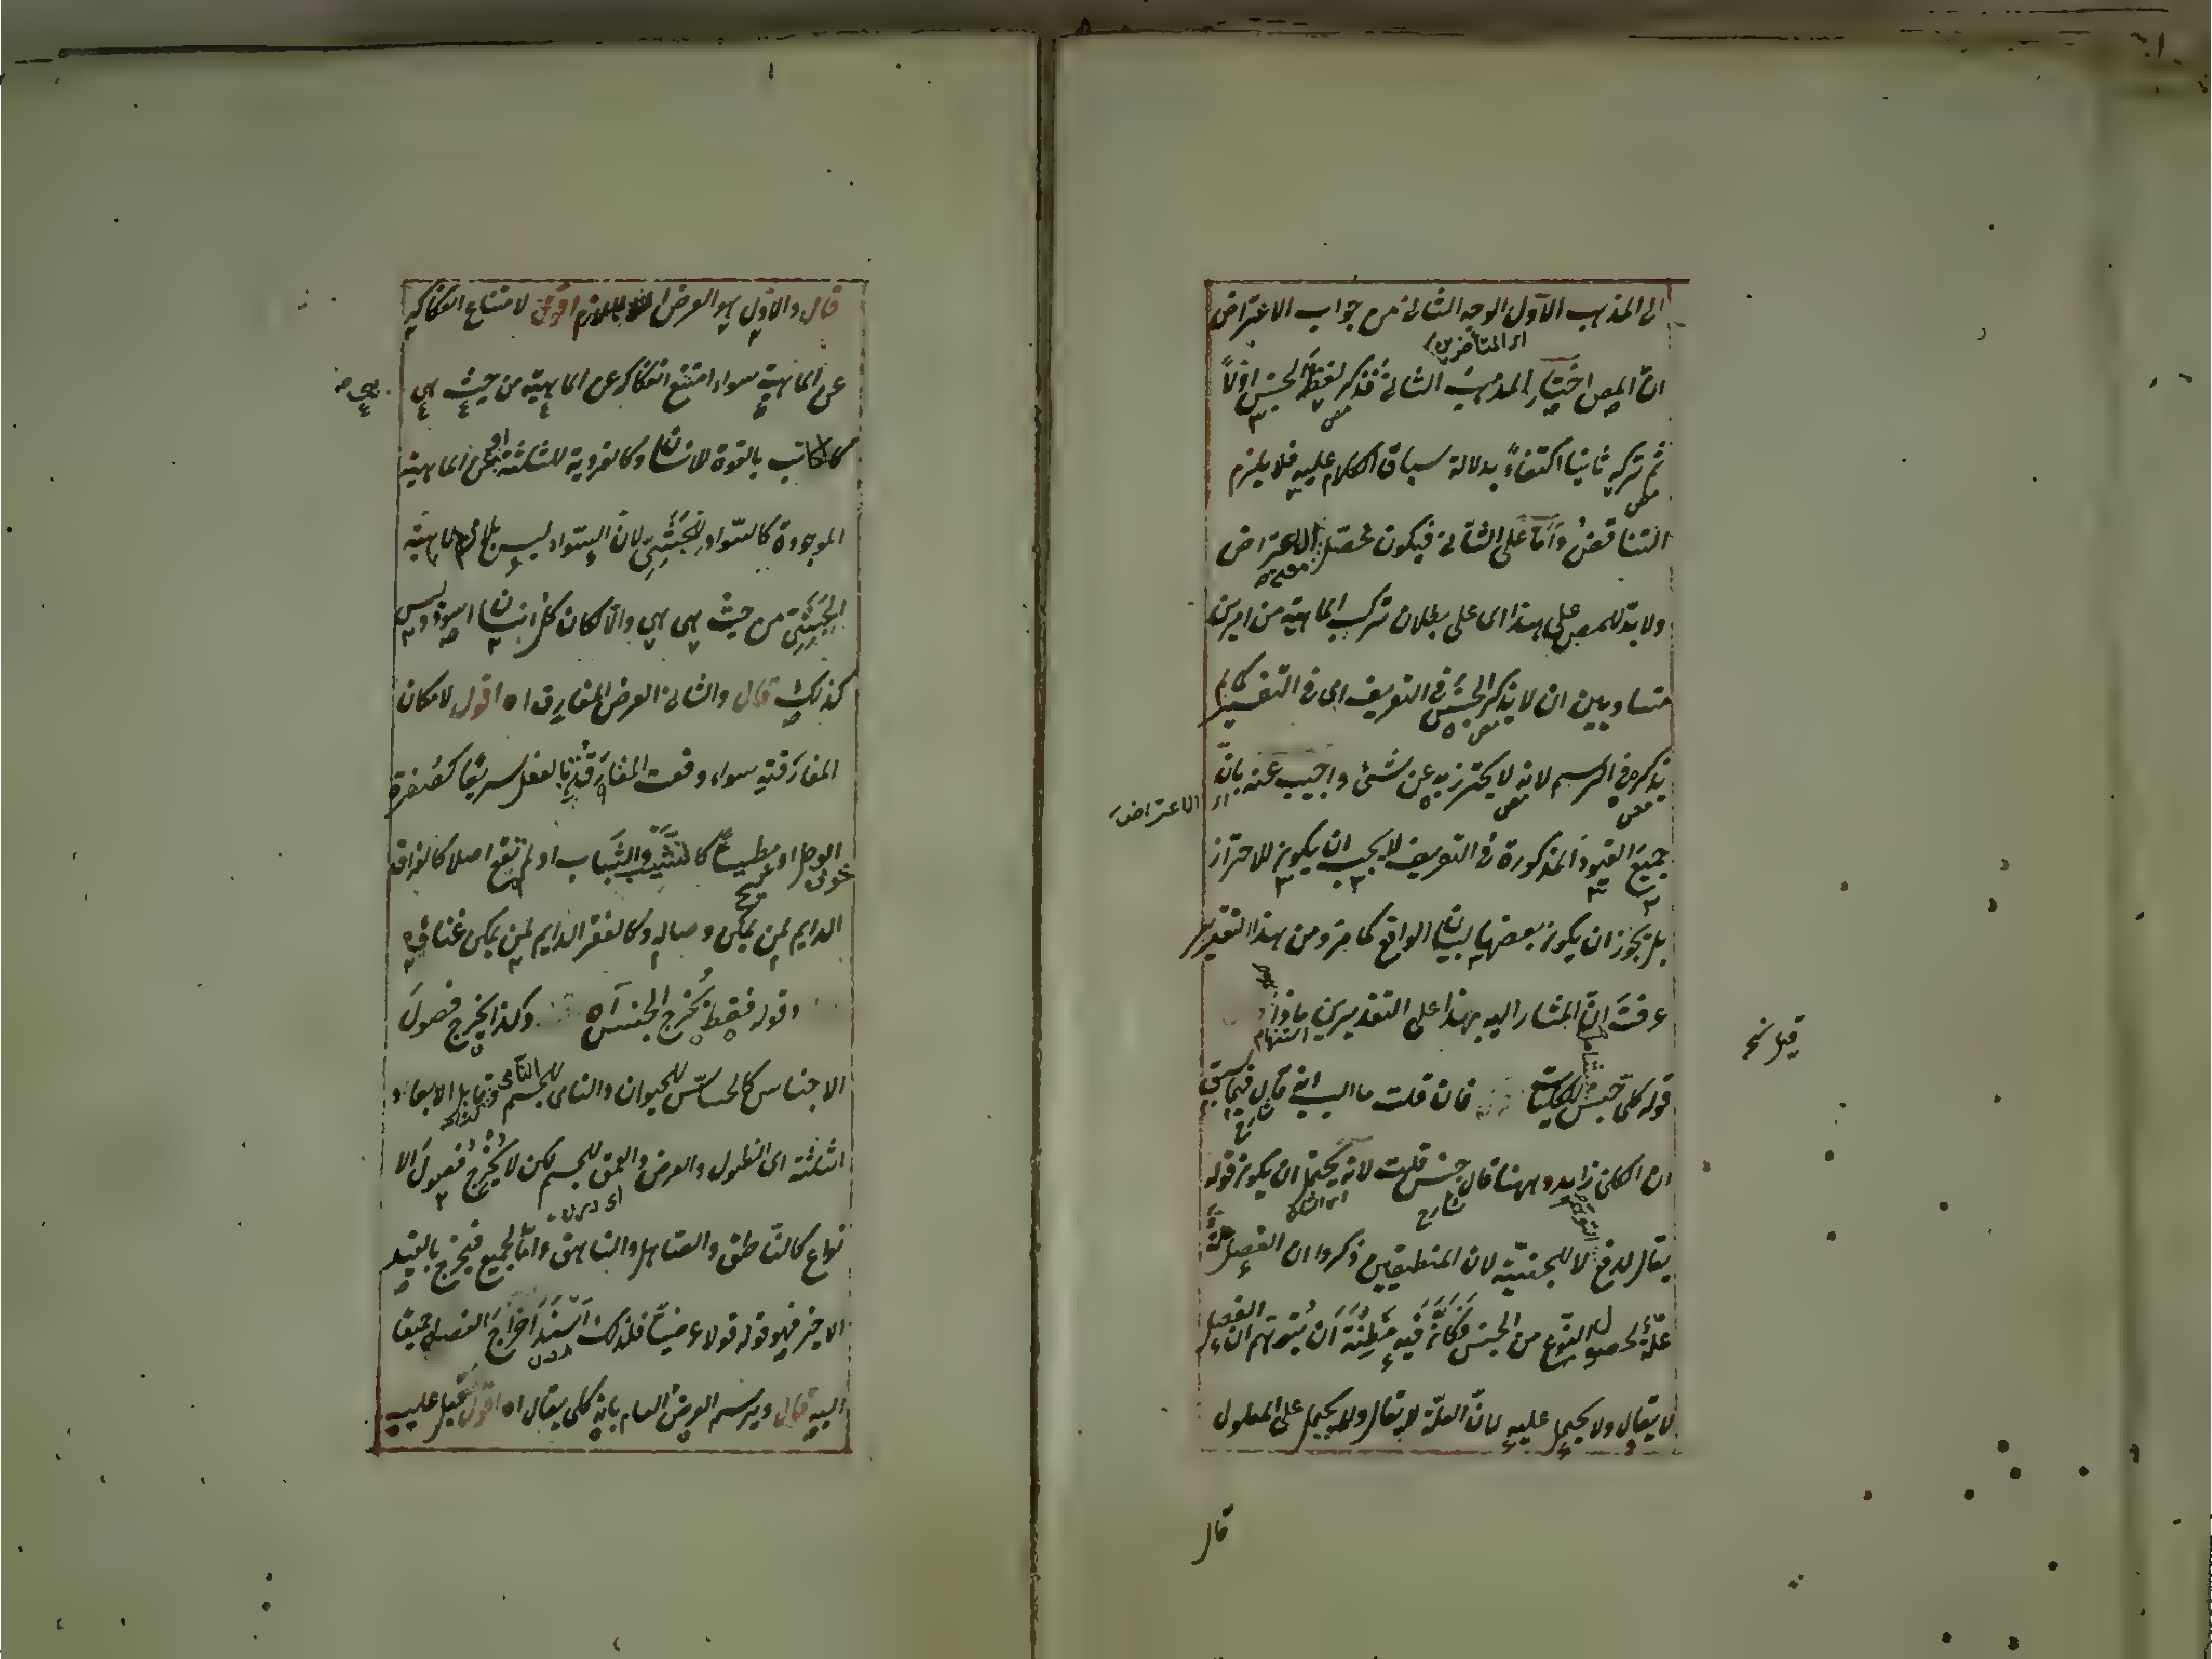 الى المذهب الاول الوجه الثانى من جواب الاعتراض
ان المص اختار المذهب الثانى فذكر لفظ الجنس اولاً
ثم تركه ثانيا اكتفاءً بدلالة سياق الكلام عليه فلا يلزم
التناقض وامّا على الثانى فيكون محصّل الاعتراض
ولا بدّ للمص على هذا اى على بطلان تركب الماهية من امرين
متساويين ان لا يذكر الجنس فى التعريف اى فى التفسير كما لم
يذكره فى الرسم لانه لا يحترز به عن شئ واجيب عنه بانّ
جميع القيود المذكورة فى التعريف لا يجب ان يكون للاحتراز
بل يجوز ان يكون بعضها لبيان الواقع كما مر ومن هذا التقدير
عرفت ان المشار اليه بهذا على التقديرين ماذا
قوله كلى جنس فان قلت ما السبب فى انه قال فيما سبق
ان الكلى زايد وههنا قال جنس قلت لانه يحتمل ان يكون قوله
يقال لدفع لا للجنسيّة لان المنطقيين ذكروا ان الفصل
علّة لحصول النوع من الجنس فكانّه فيه مظنّة ان يتوهم ان الفصل
لا يقال ولا يحمل عليه لانّ العلّة لا يقال ولا يحمل على المعلول
الاعتراض
قيل نخ
قال
قال والاول هو العرض اللازم اقول لامتناع انفكاكه
عن الماهية سواء امتنع انفكاكه عن الماهية من حيث هى
كالكاتب بالقوة للانسان وكالفردية للثلثة او عن الماهية
الموجودة كالسّواد للحبشىّ لان السّواد ليس بلازم لماهية
الحبشىّ من حيث هى هى والا لكان كل انسان اسود وليس
كذلك قال والثانى العرض المفارق اه اقول لامكان
المفارقة سواء وقعت المفارقة بالفعل سريعا كصفرة
الوجل او بطيئاً كالشّيب والشّباب او لم تقع اصلا كالفراق
الدايم لمن يمكن وصاله وكالفقر الدايم لمن يمكن غناؤه
وقوله فقط يخرج الجنس اه وكذا يخرج فصول
الاجناس كالحسّاس للحيوان والنامى للجسم النامى وقابل الابعاد
الثلثة اى الطول والعرض والعمق للجسم لكن لا يخرج فصول الا
نواع كالناطق والصاهل والناهق وامّا الجميع فيخرج بالقيد
الاخير فهو قوله قولا عرضياً فلذلك اسند اخراج الفصل جميعا
اليه قال ويرسم العرض العام بانه كلى يقال اه اقول قيل عليه